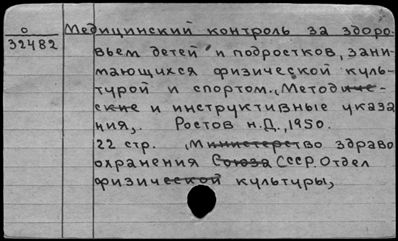 О Медицинский контроль за здоро-
32482 вьем детей и подростков, зани-
мающихся физической куль-
турой и спортом. Методиче-
ские и инструктивные указа
ния, Ростов н.Д., 1950.
22 стр. Министерство здраво
охранения Союза СССР. Отдел
физической культуры,